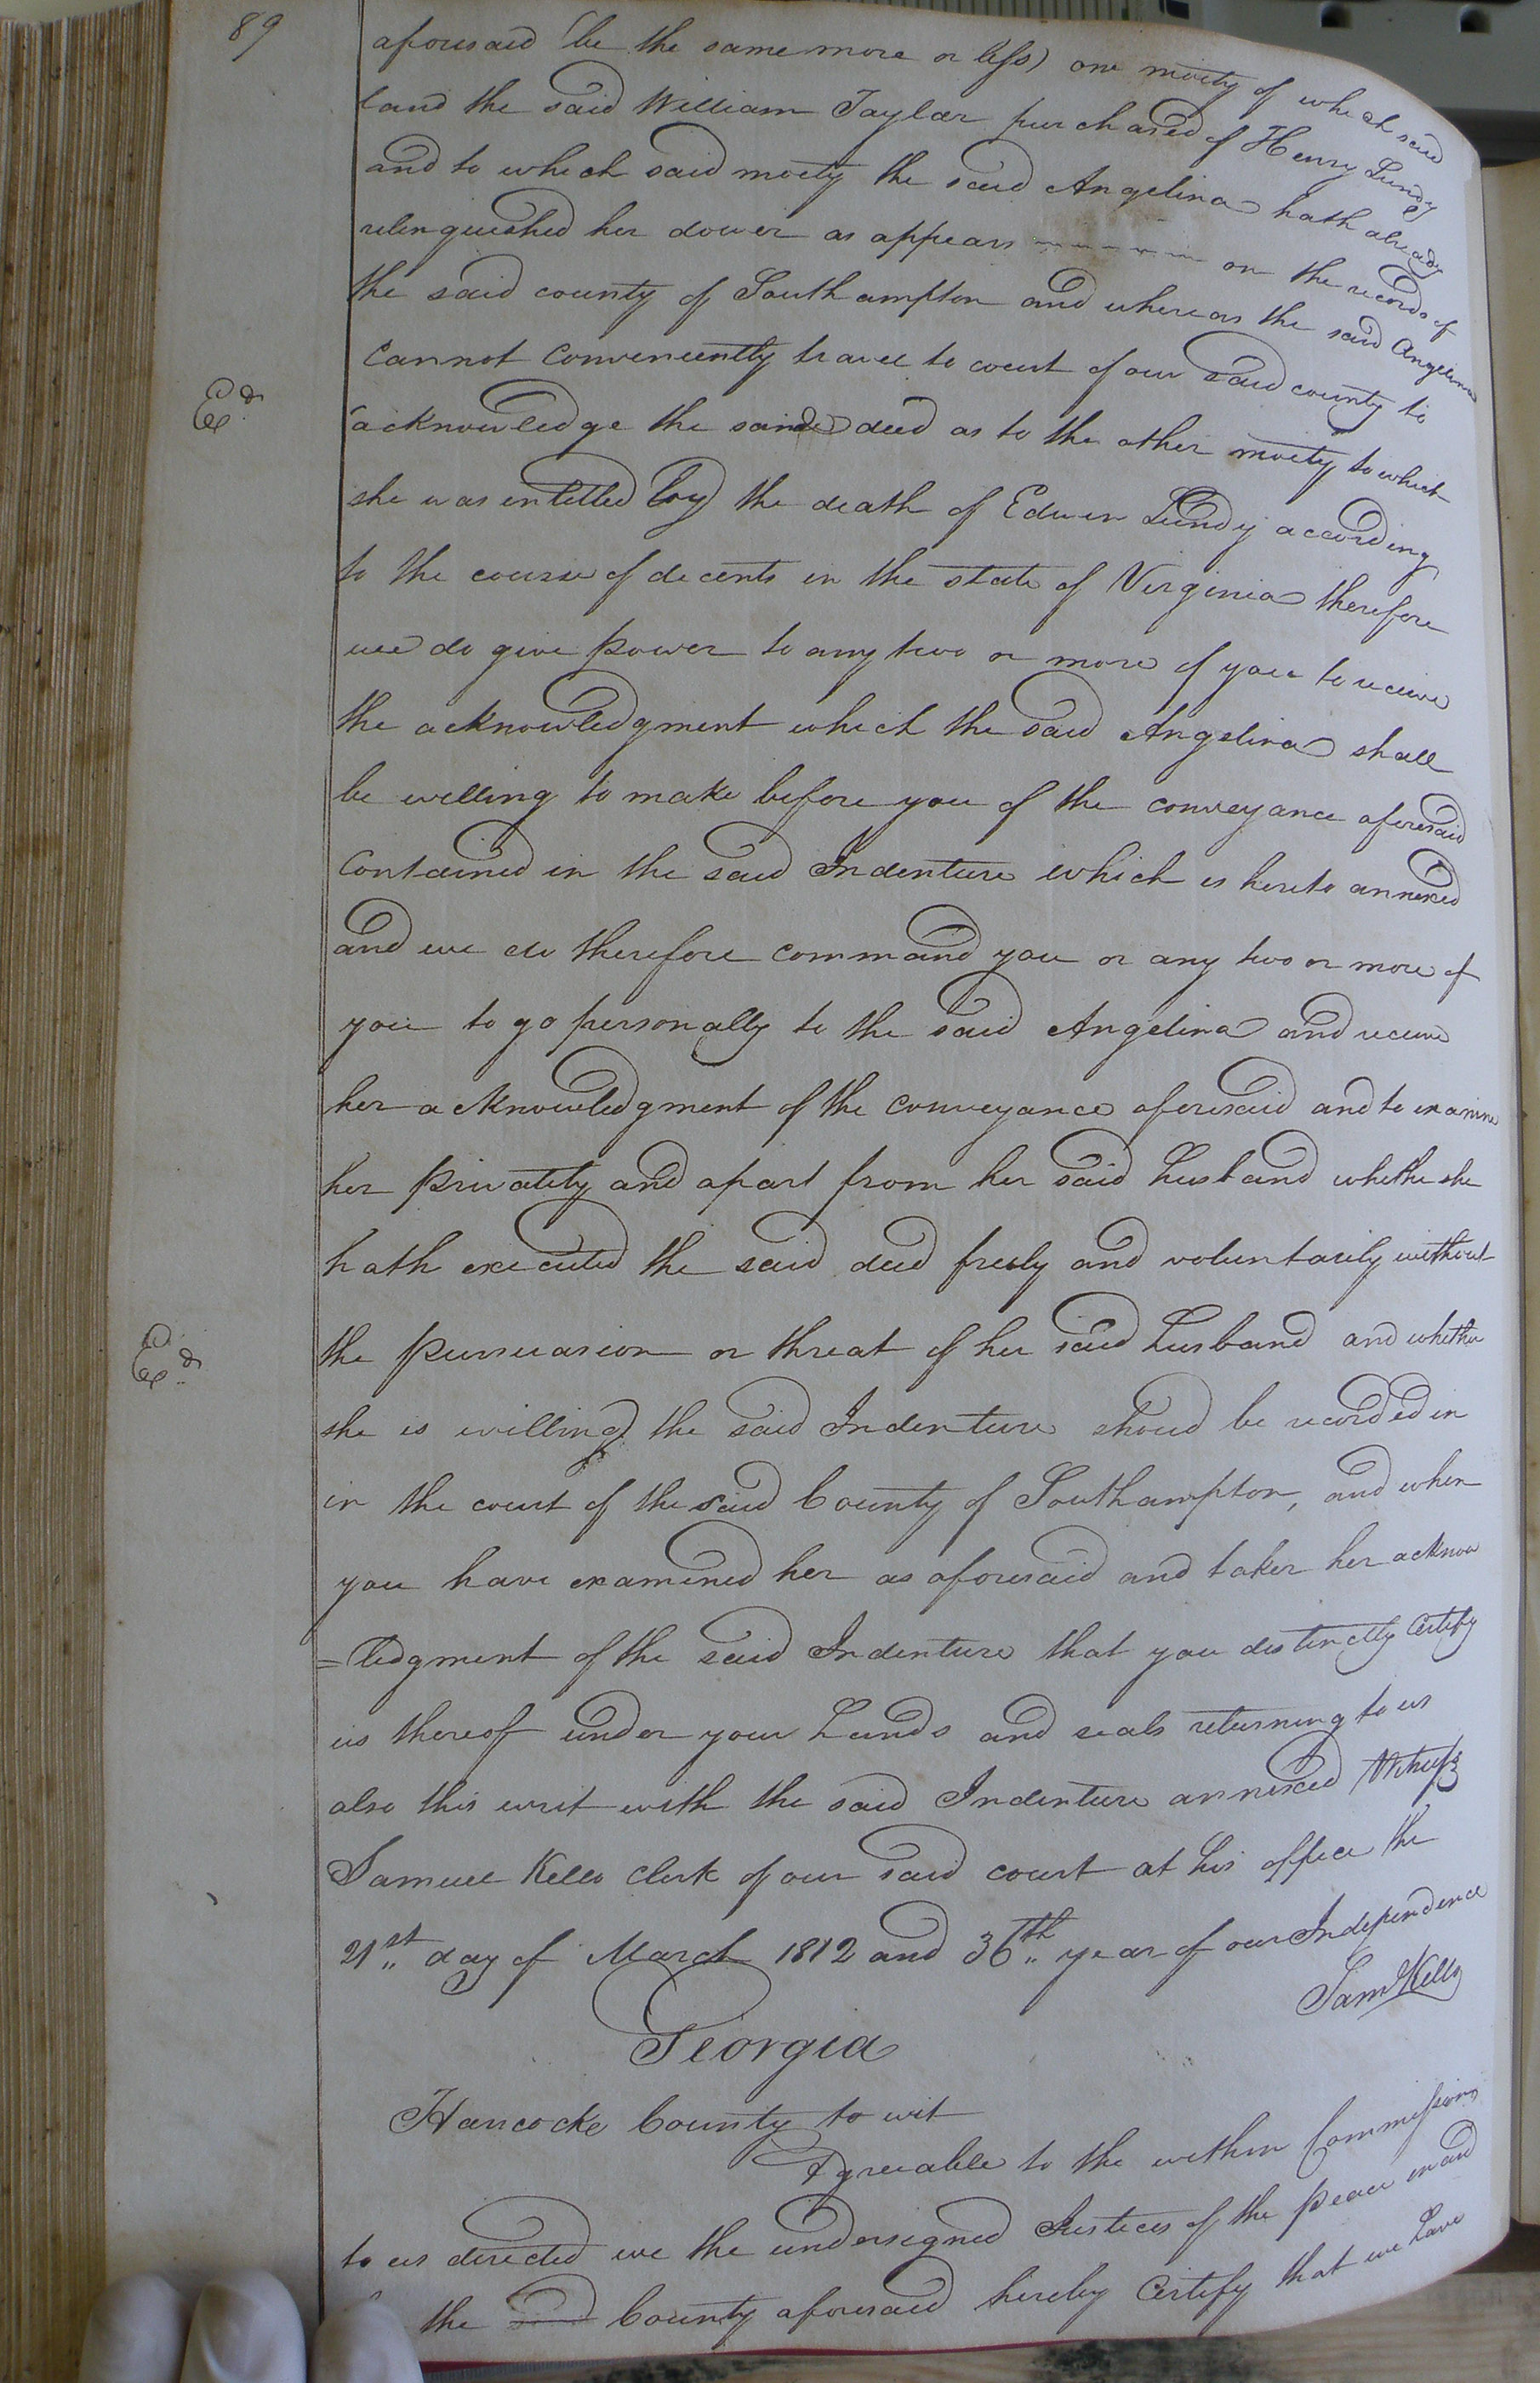 89
aforesaid (be the same more or less) one moiety of which said
land the said William Taylor purchased of Henry Lundy
and to which said moety the said Angelina hath already
relenquished her dower as appears on the records of
the said county of Southampton and whereas the said Angelina
cannot conveniently travel to court of our said county to
Exd
acknowledge the same deed as to the other moiety to which
she was entitled by the death of Edwin Lundy according
to the course of decents in the state of Virginia therefore
we do give power to any two or more of you to receive
the acknowledgment which the said Angelina shall
be willing to make before you of the conveyance aforesaid
contained in the said Indenture which is hereto annexed
and we do therefore command you or any two or more of
you to go personally to the said Angelina and receive
her acknowledgment of the conveyance aforesaid and to examine
her privately and apart from her said husband whethe she
hath executed the said deed freely and voluntarily without
the persuasion or threat of her said husband and whether
Exd
she is willing the said Indenture shoud be recorded in
in the court of the said County of Southampton, and when
you have examined her as aforesaid and taken her acknow
=ledgment of the said Indenture that you distinctly certify
us thereof under your hands and seals returning to us
also this writ with the said Indenture annexed Witness
Samuel Kello Clerk of our said court at his office the
21st day of March 1812 and 36th year of our Independence
Saml Kello
Georgia
Hancocke County to wit
Agreeable to the within Commission
to us directed we the undersigned Justices of the peace in and
the said County aforesaid hereby Certify that we have